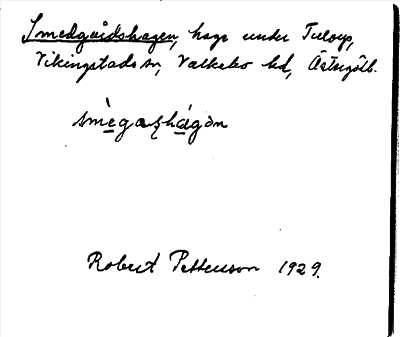 Smedgårdshagen, hage under Tuleorp,
Vikingstads sn, Valkebo hd, Östergötl.
smègaʂhágən
Robert Pettersson 1929.